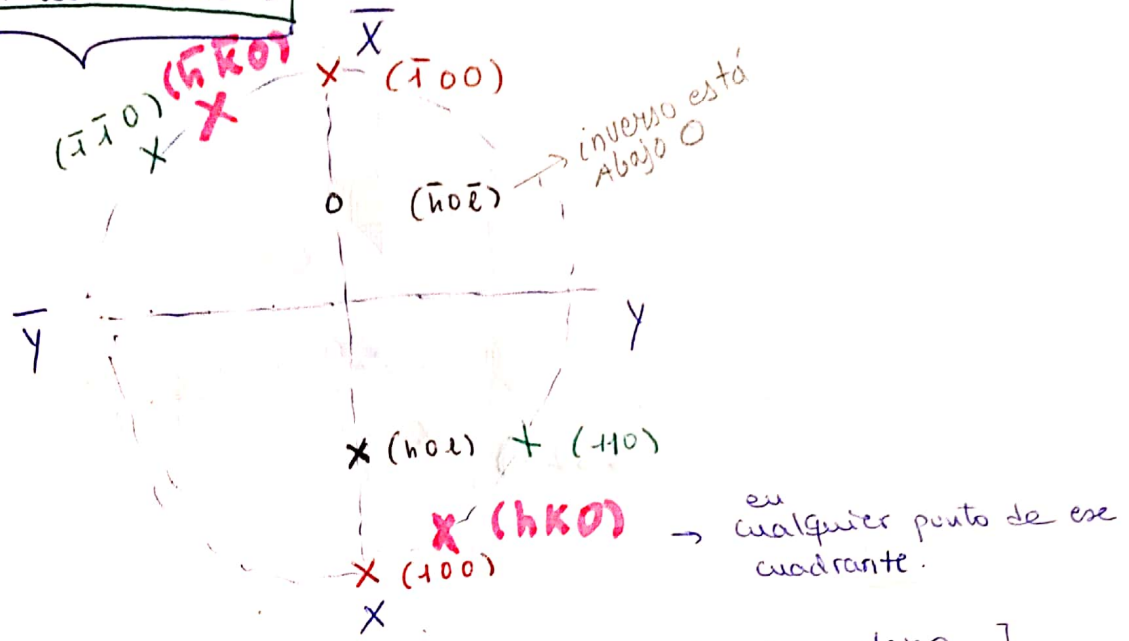 X̄
(h̄k̄0)
X (1̄00)
(1̄1̄0) X
X
O (h̄0l̄) → inverso está
Abajo O
Ȳ
Y
X (h0l) X (110)
X (hK0) → en
cualquier punto de ese
cuadrante.
X (100)
X